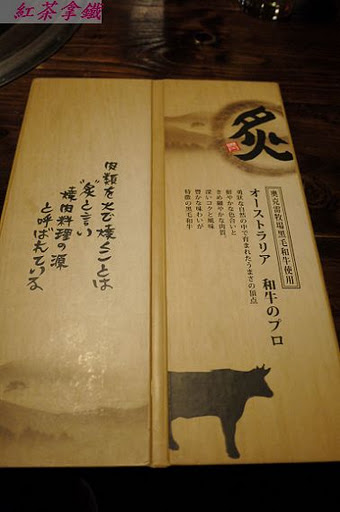 紅茶拿鐵
炙
奧克雷牧場黑毛和牛使用
オーストラリア 和牛のプロ
勇壮な自然の中で育まれたうまさの頂点
鮮やかな色合いと
きめ細やかな肉質
深いコクと風味
豊かな味わいが
特徴の黒毛和牛
肉類を火で焼くことは
"炙"と言い
焼肉料理の源
と呼ばれている